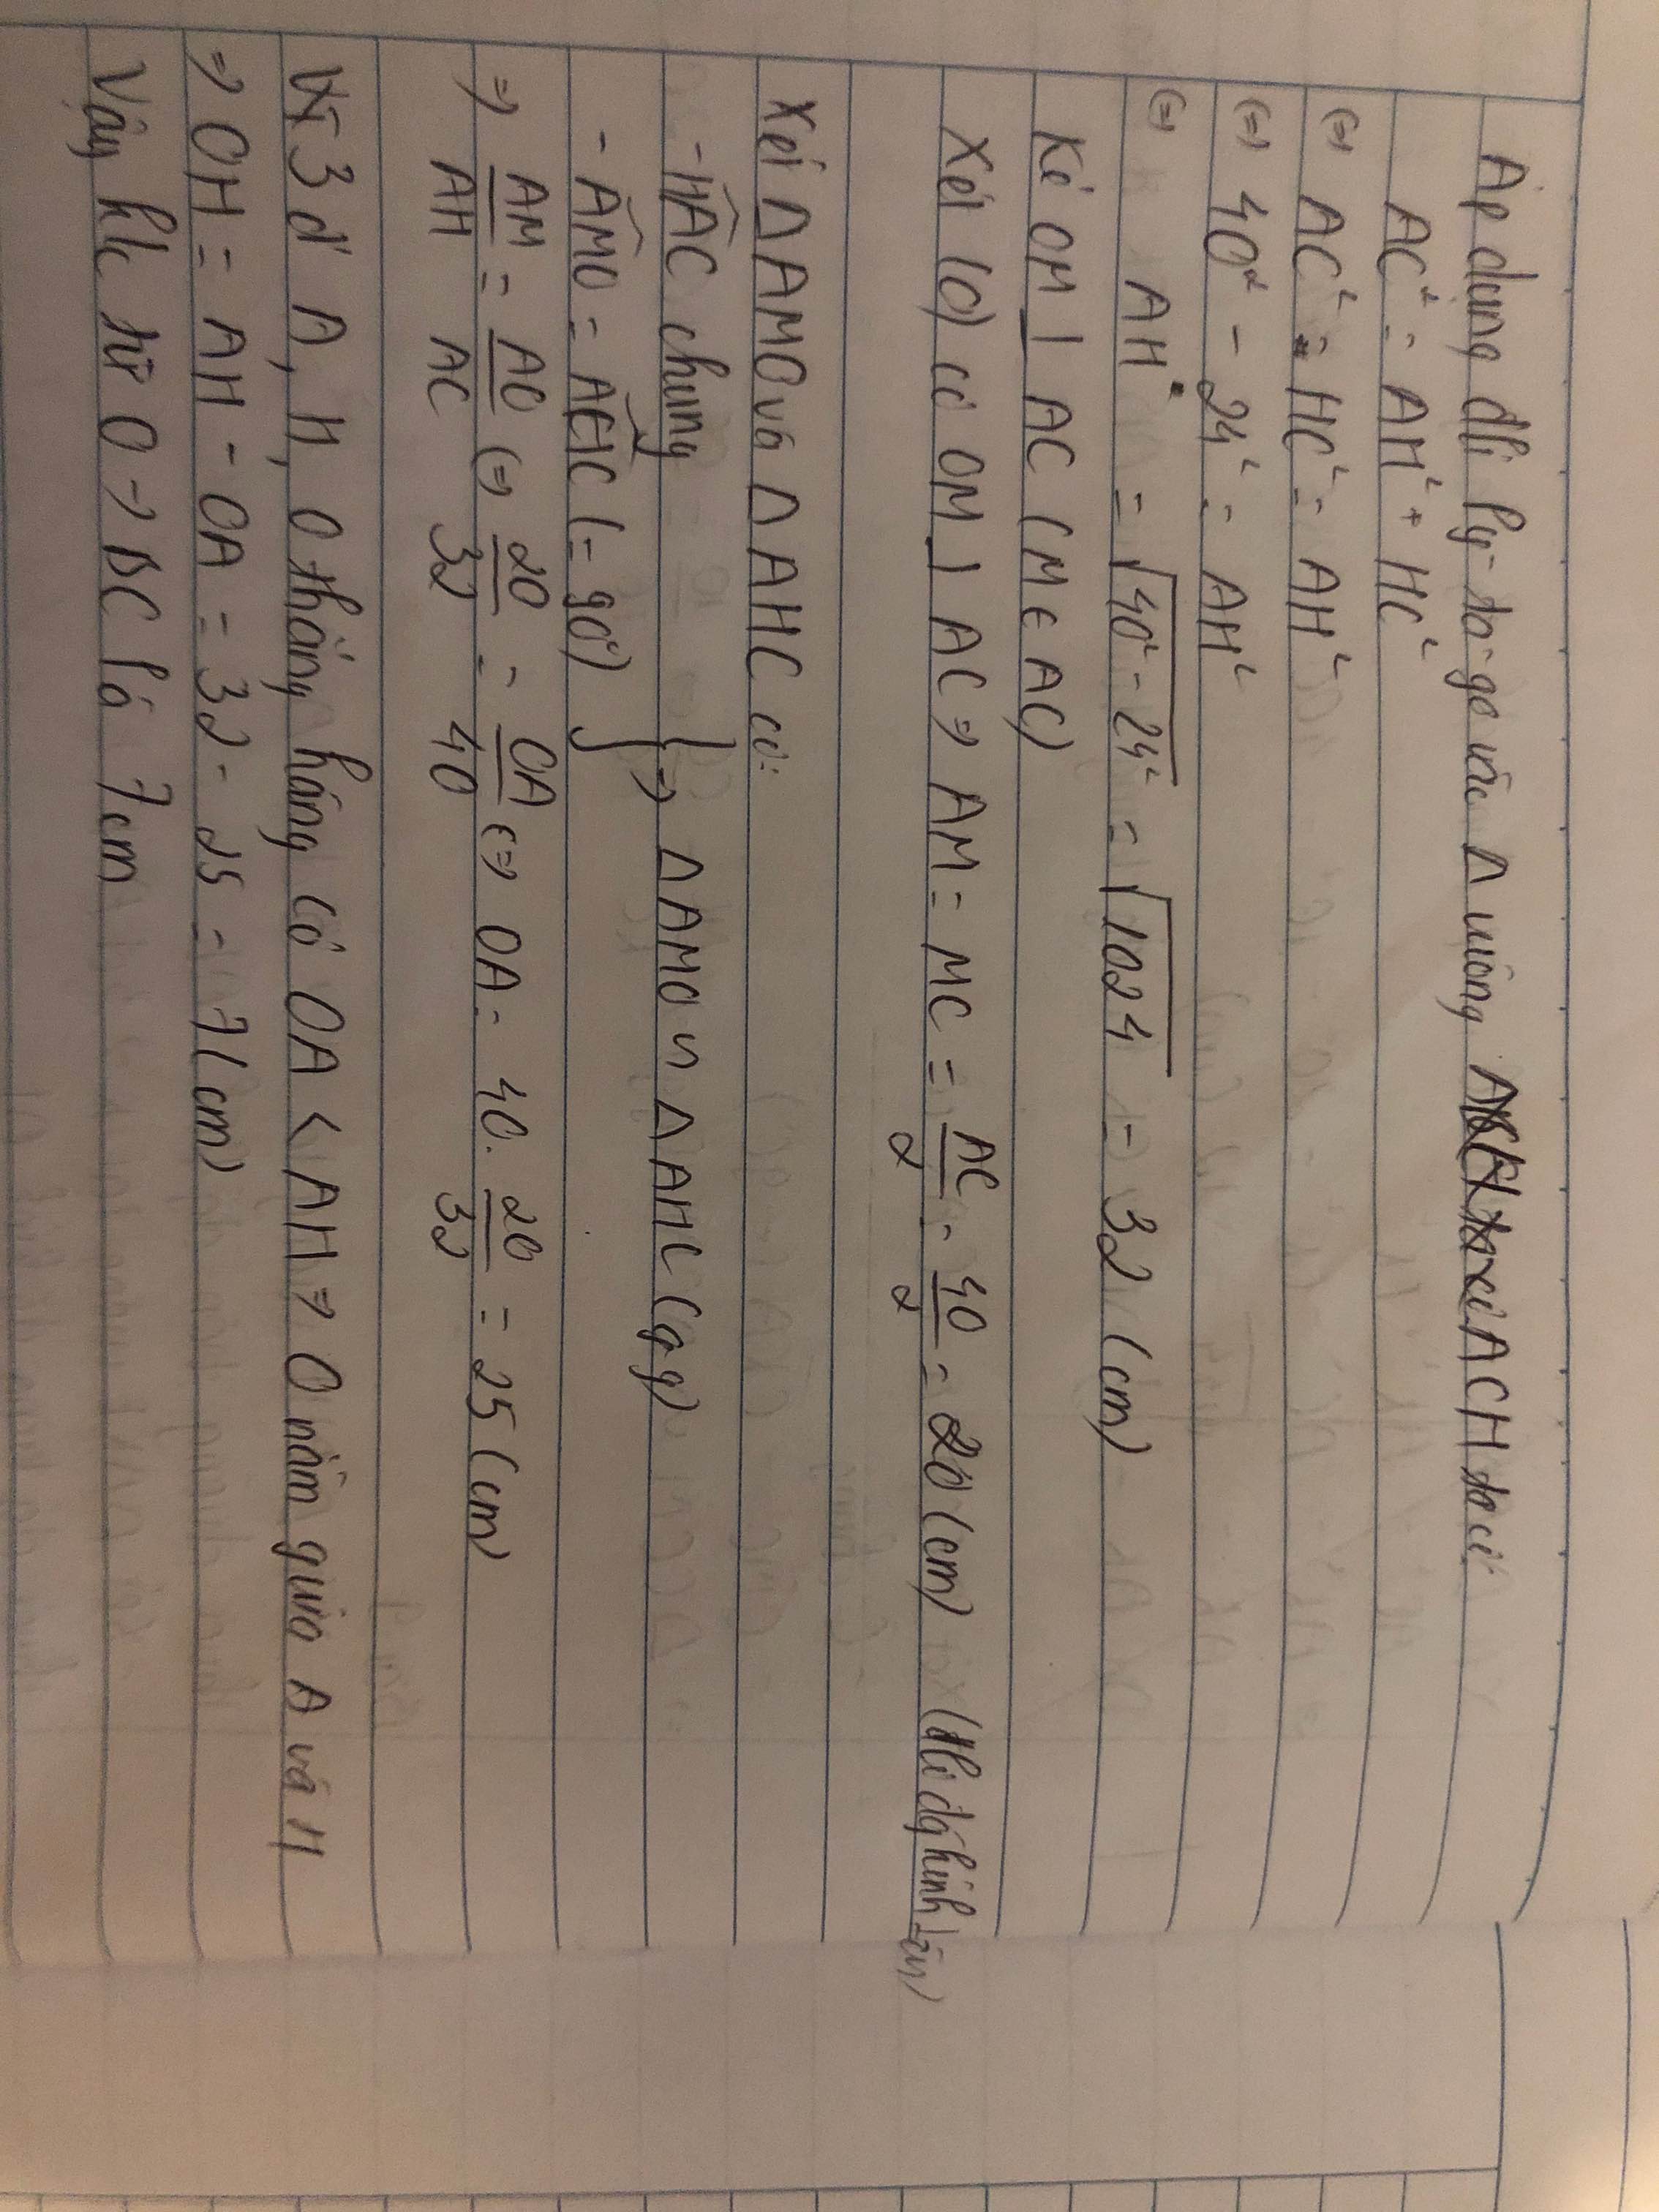 Áp dụng đlí Py-ta-go vào Δ vuông ACH ta có
AC² = AH² + HC²
(=) AC² - HC² = AH²
(=) 40² - 24² = AH²
(=) AH = √40² - 24² = √1024 = 32 (cm)
Kẻ OM ⊥ AC (M ∈ AC)
Xét (O) có OM ⊥ AC => AM = MC = AC/2 = 40/2 = 20 (cm) (đlí đg kính
Xét Δ AMO và Δ AHC có:
- HÂC chung
- AM̂O = AĤC (= 90°) } => Δ AMO ∽ Δ AHC (gg)
=> AM/AH = AO/AC (=) 20/32 = OA/40 (=> OA = 40. 20/32 = 25 (cm)
Vì 3 đ' A, H, O thẳng hàng có OA < AH => O nằm giữa A và H
=> OH = AH - OA = 32 - 25 = 7 (cm)
Vậy k/c từ O -> BC là 7cm